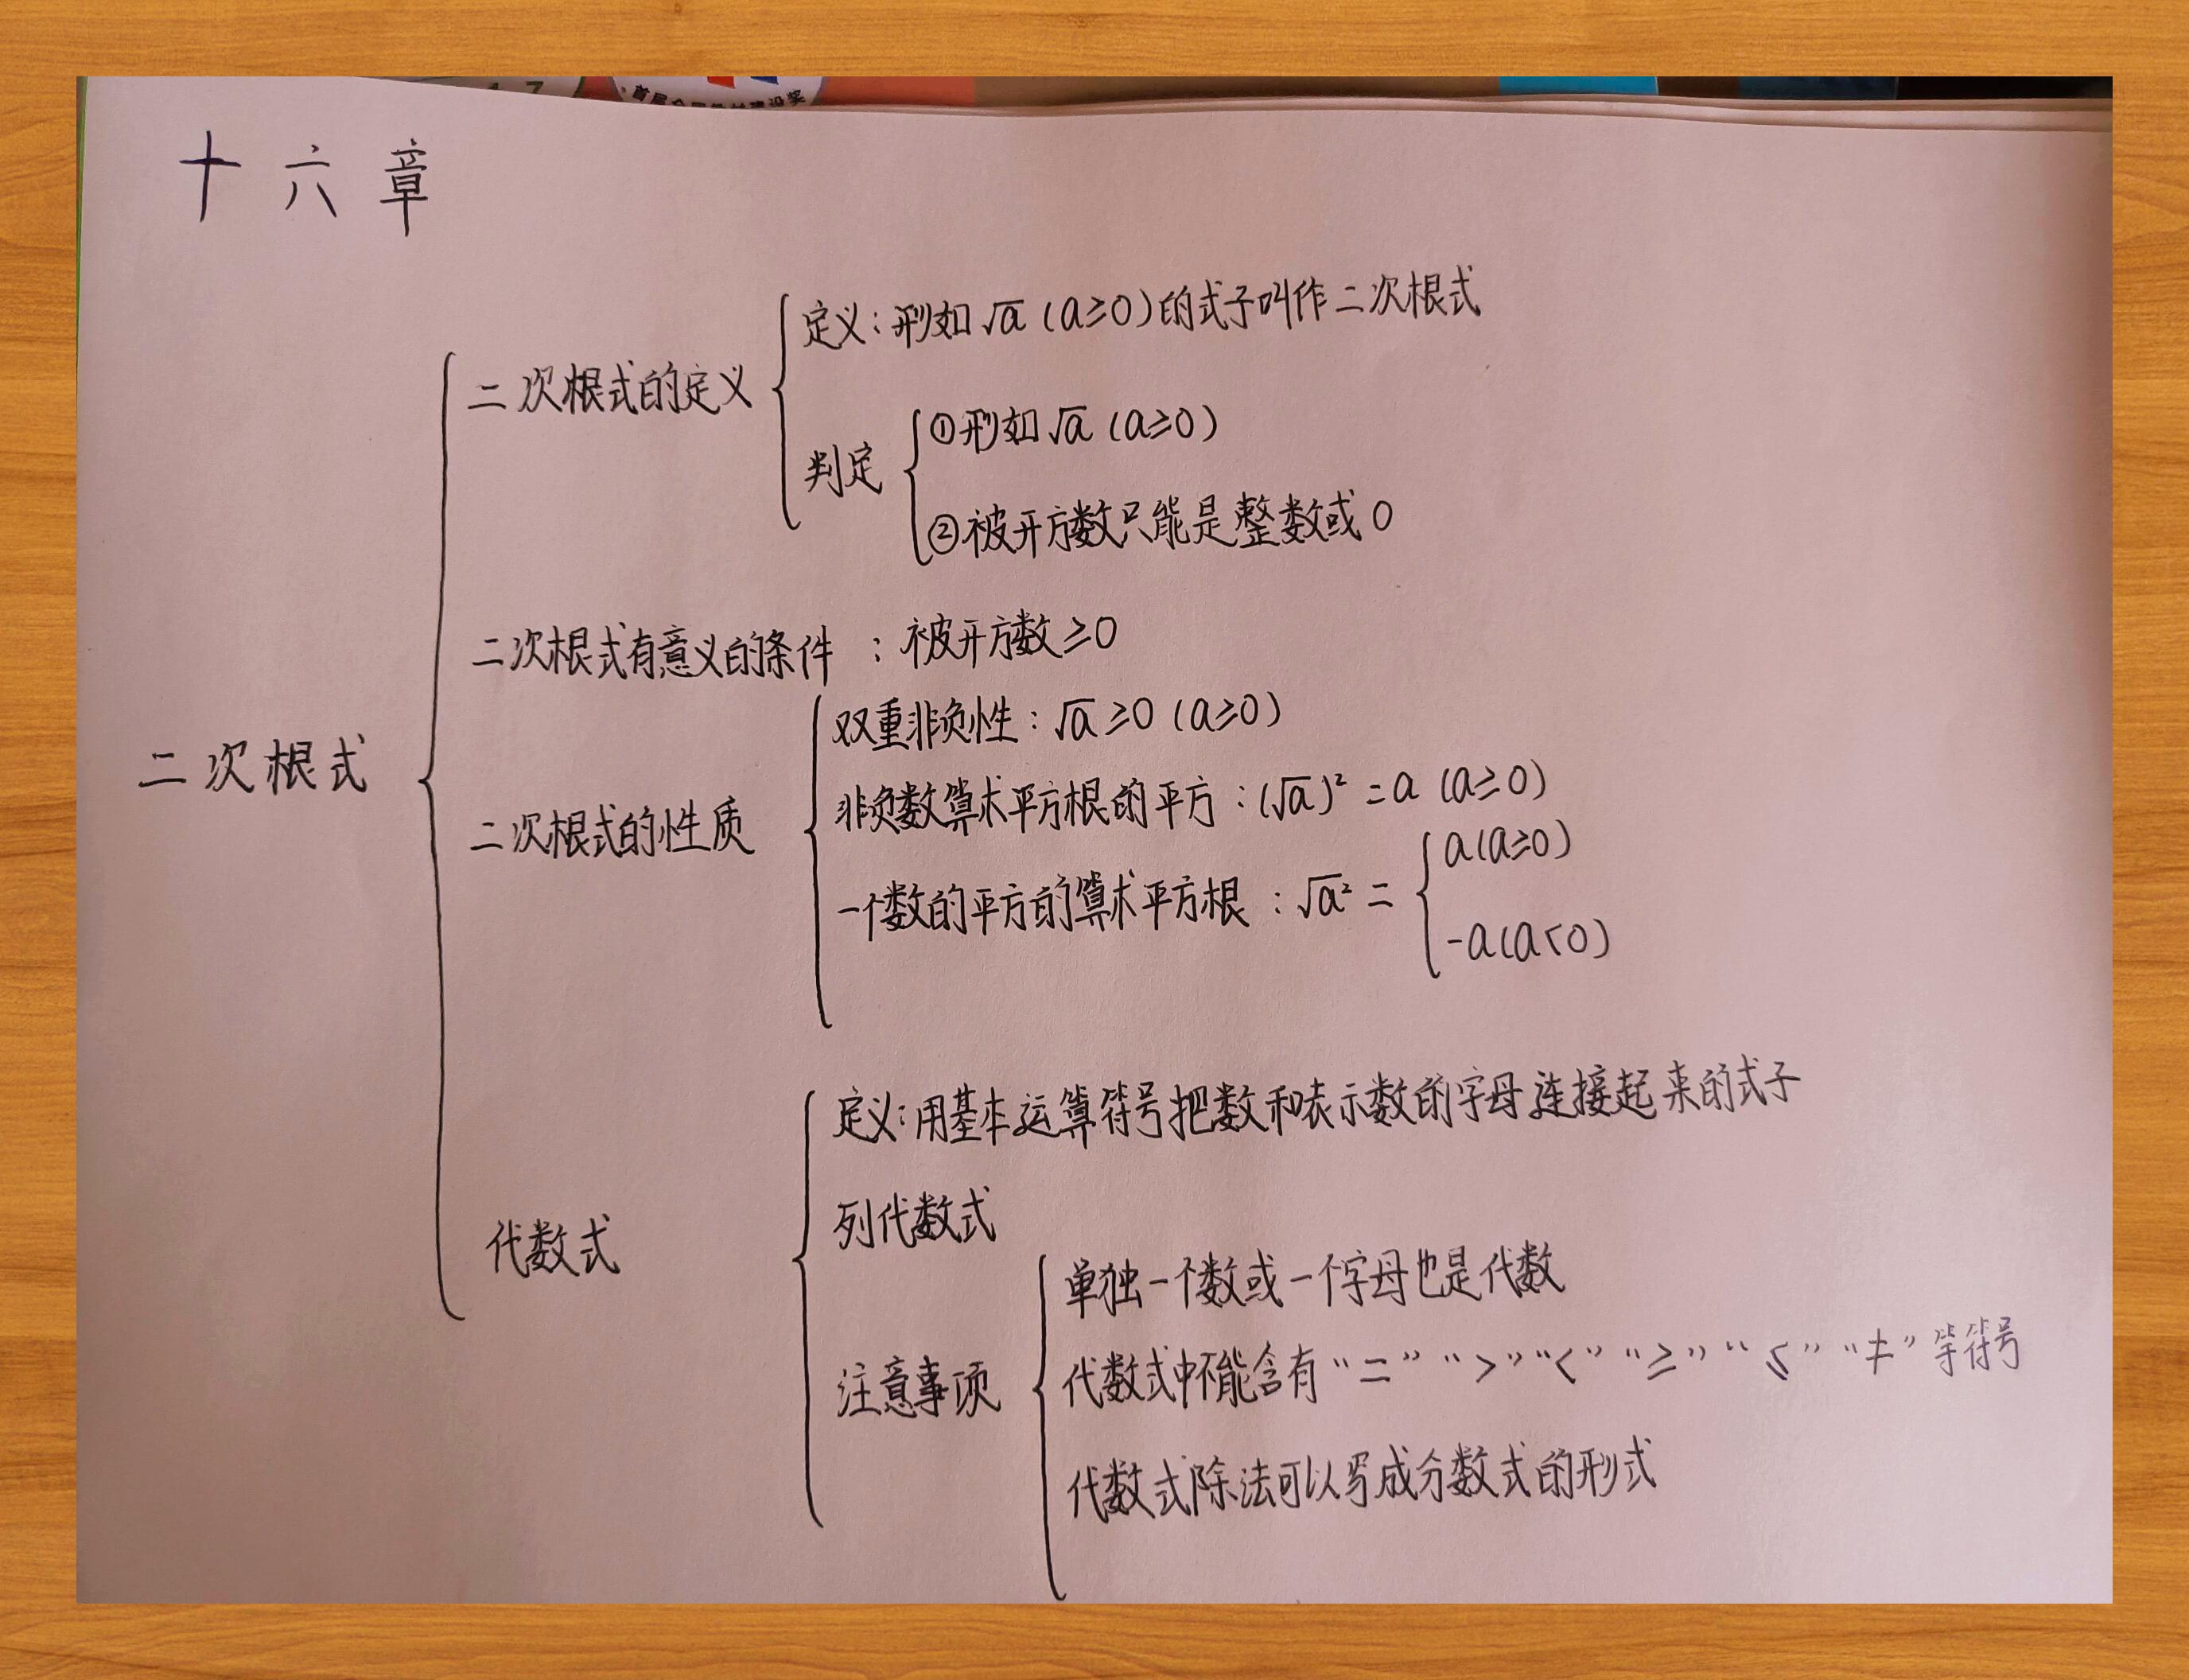 17
首届全国教材建设奖
十六章
定义：形如√a（a≥0）的式子叫作二次根式
二次根式的定义
①形如√a（a≥0）
判定
②被开方数只能是整数或0
二次根式有意义的条件：被开方数≥0
双重非负性：√a≥0（a≥0）
二次根式
非负数算术平方根的平方：(√a)²=a（a≥0）
二次根式的性质
a（a≥0）
一个数的平方的算术平方根：√a²=
-a（a<0）
定义：用基本运算符号把数和表示数的字母连接起来的式子
列代数式
代数式
单独一个数或一个字母也是代数
代数式中不能含有“=”“>”“<”“≥”“≤”“≠”等符号
注意事项
代数式除法可以写成分数式的形式